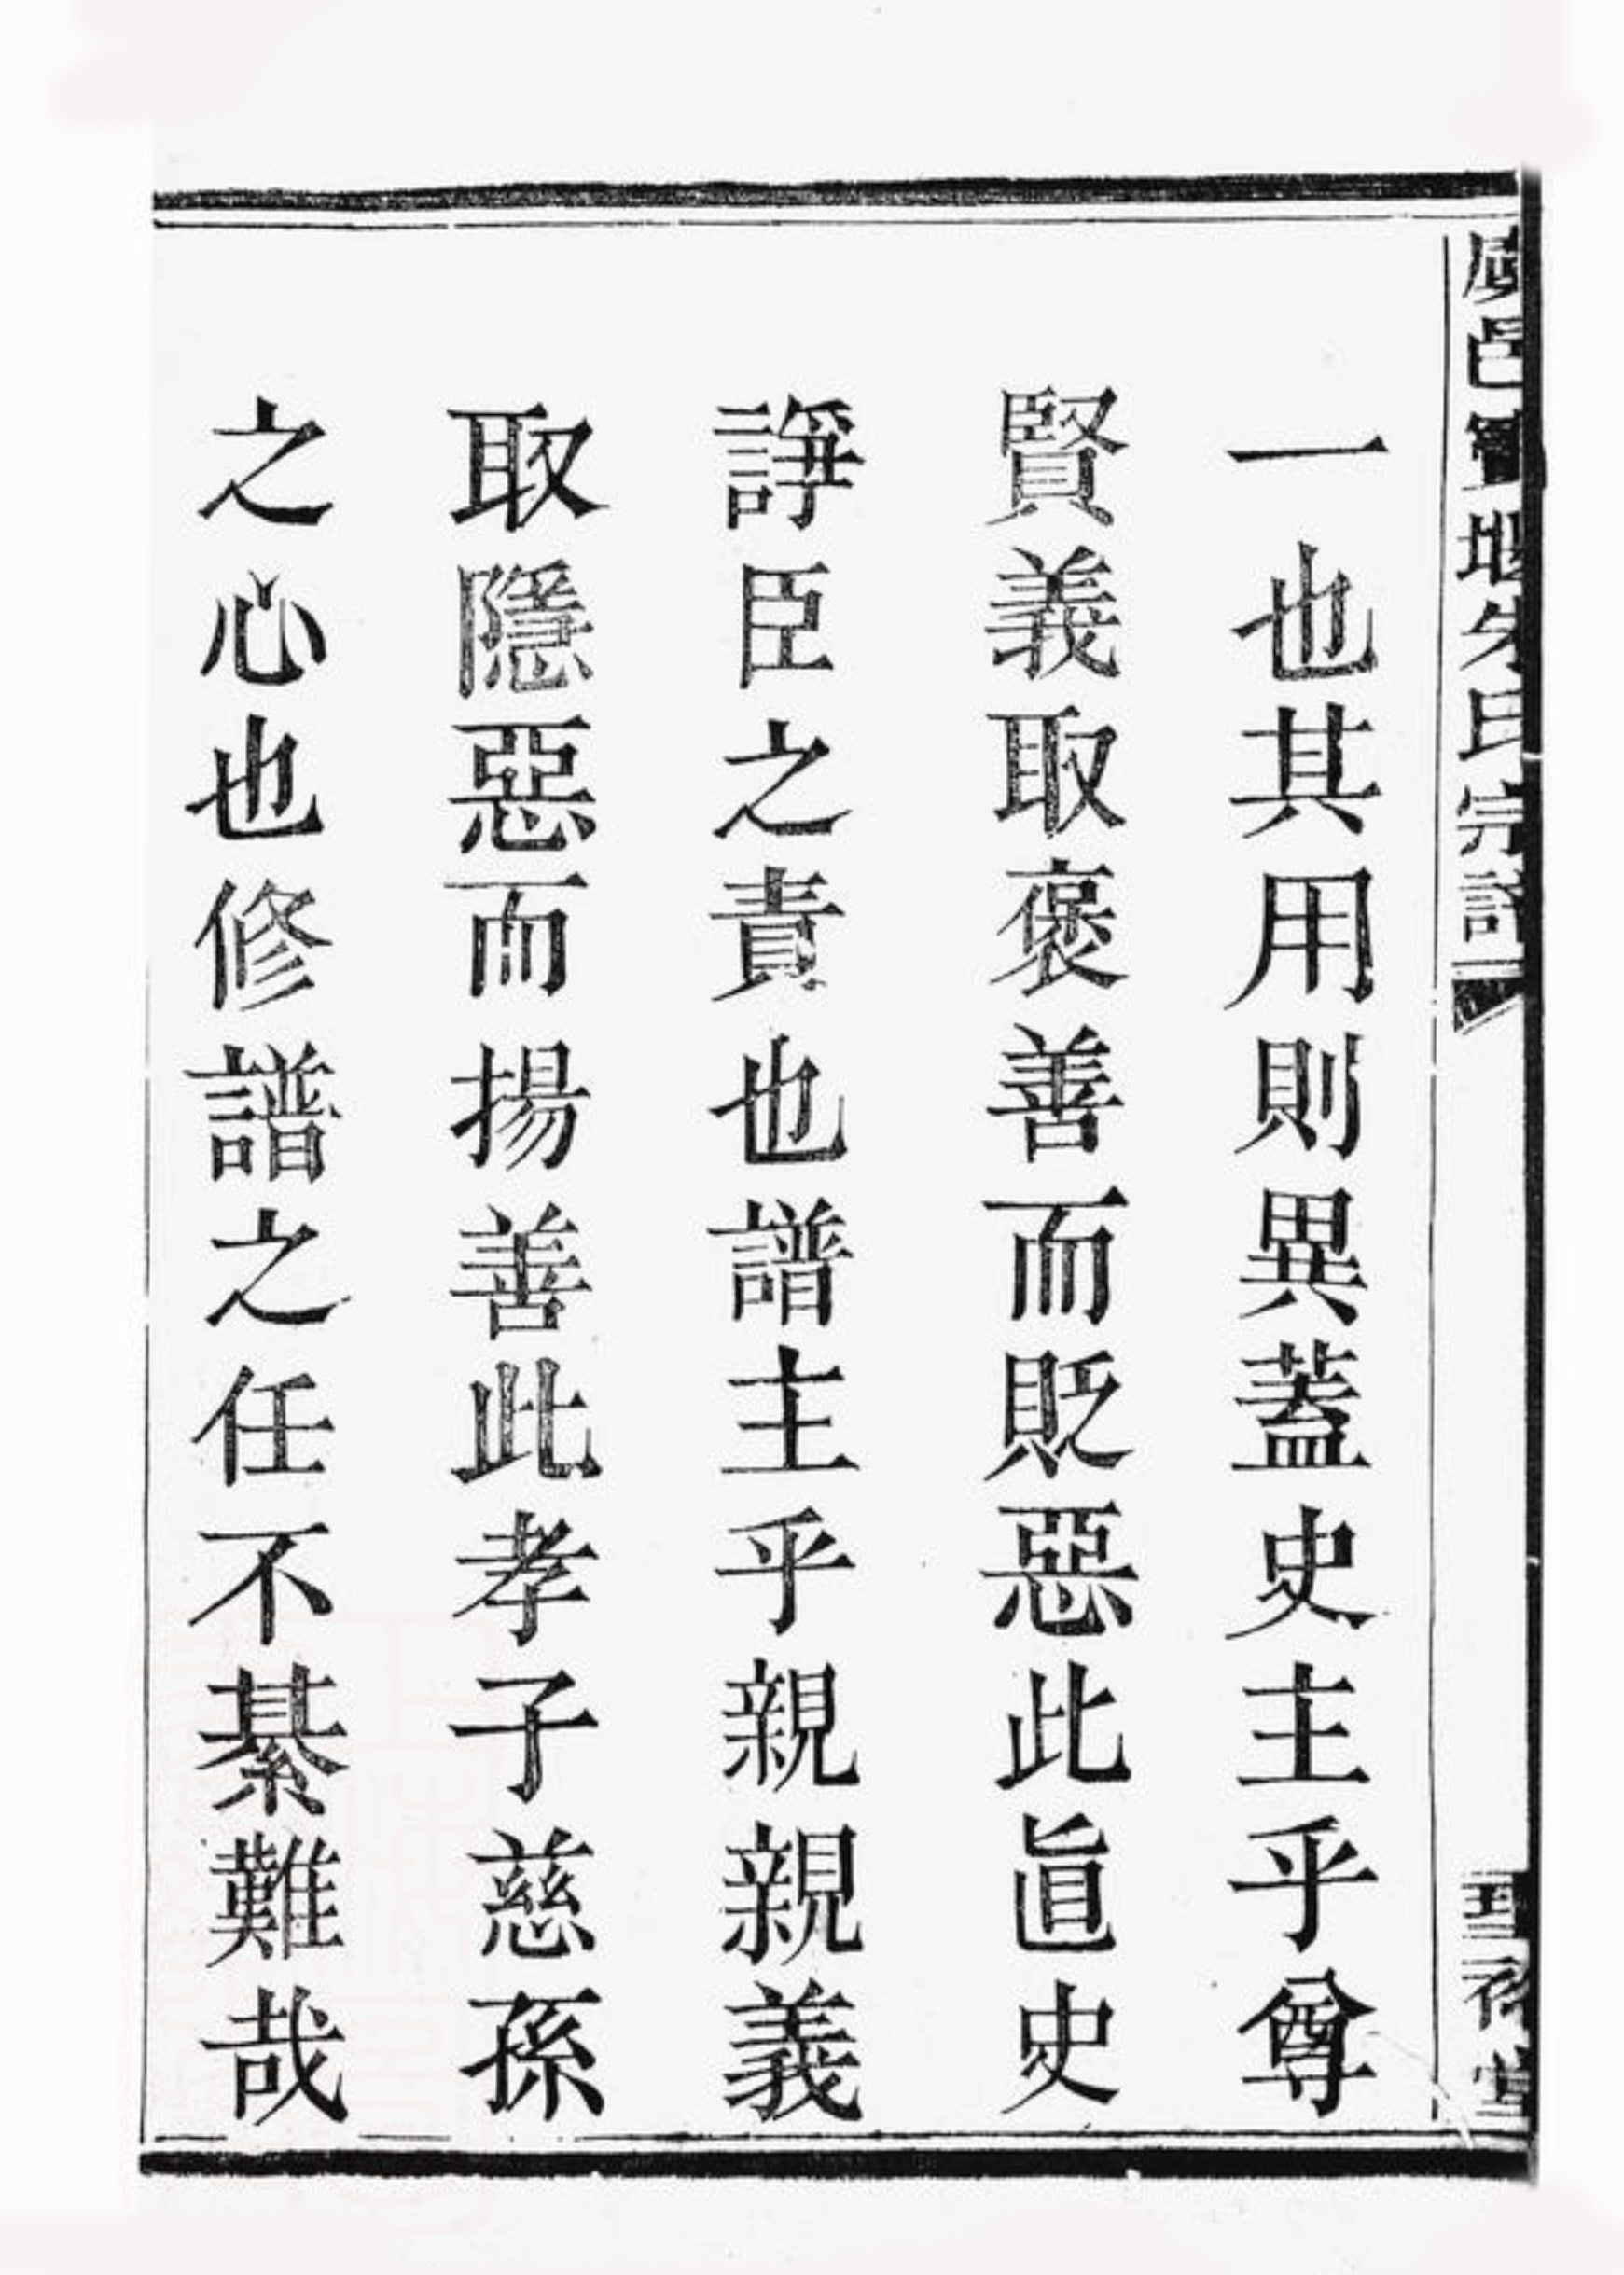 邑堰朱氏宗譜
一也其用則異蓋史主乎尊
賢義取褒善而貶惡此眞史
諍臣之責也譜主乎親親義
取隱惡而揚善此孝子慈孫
之心也修譜之任不綦難哉